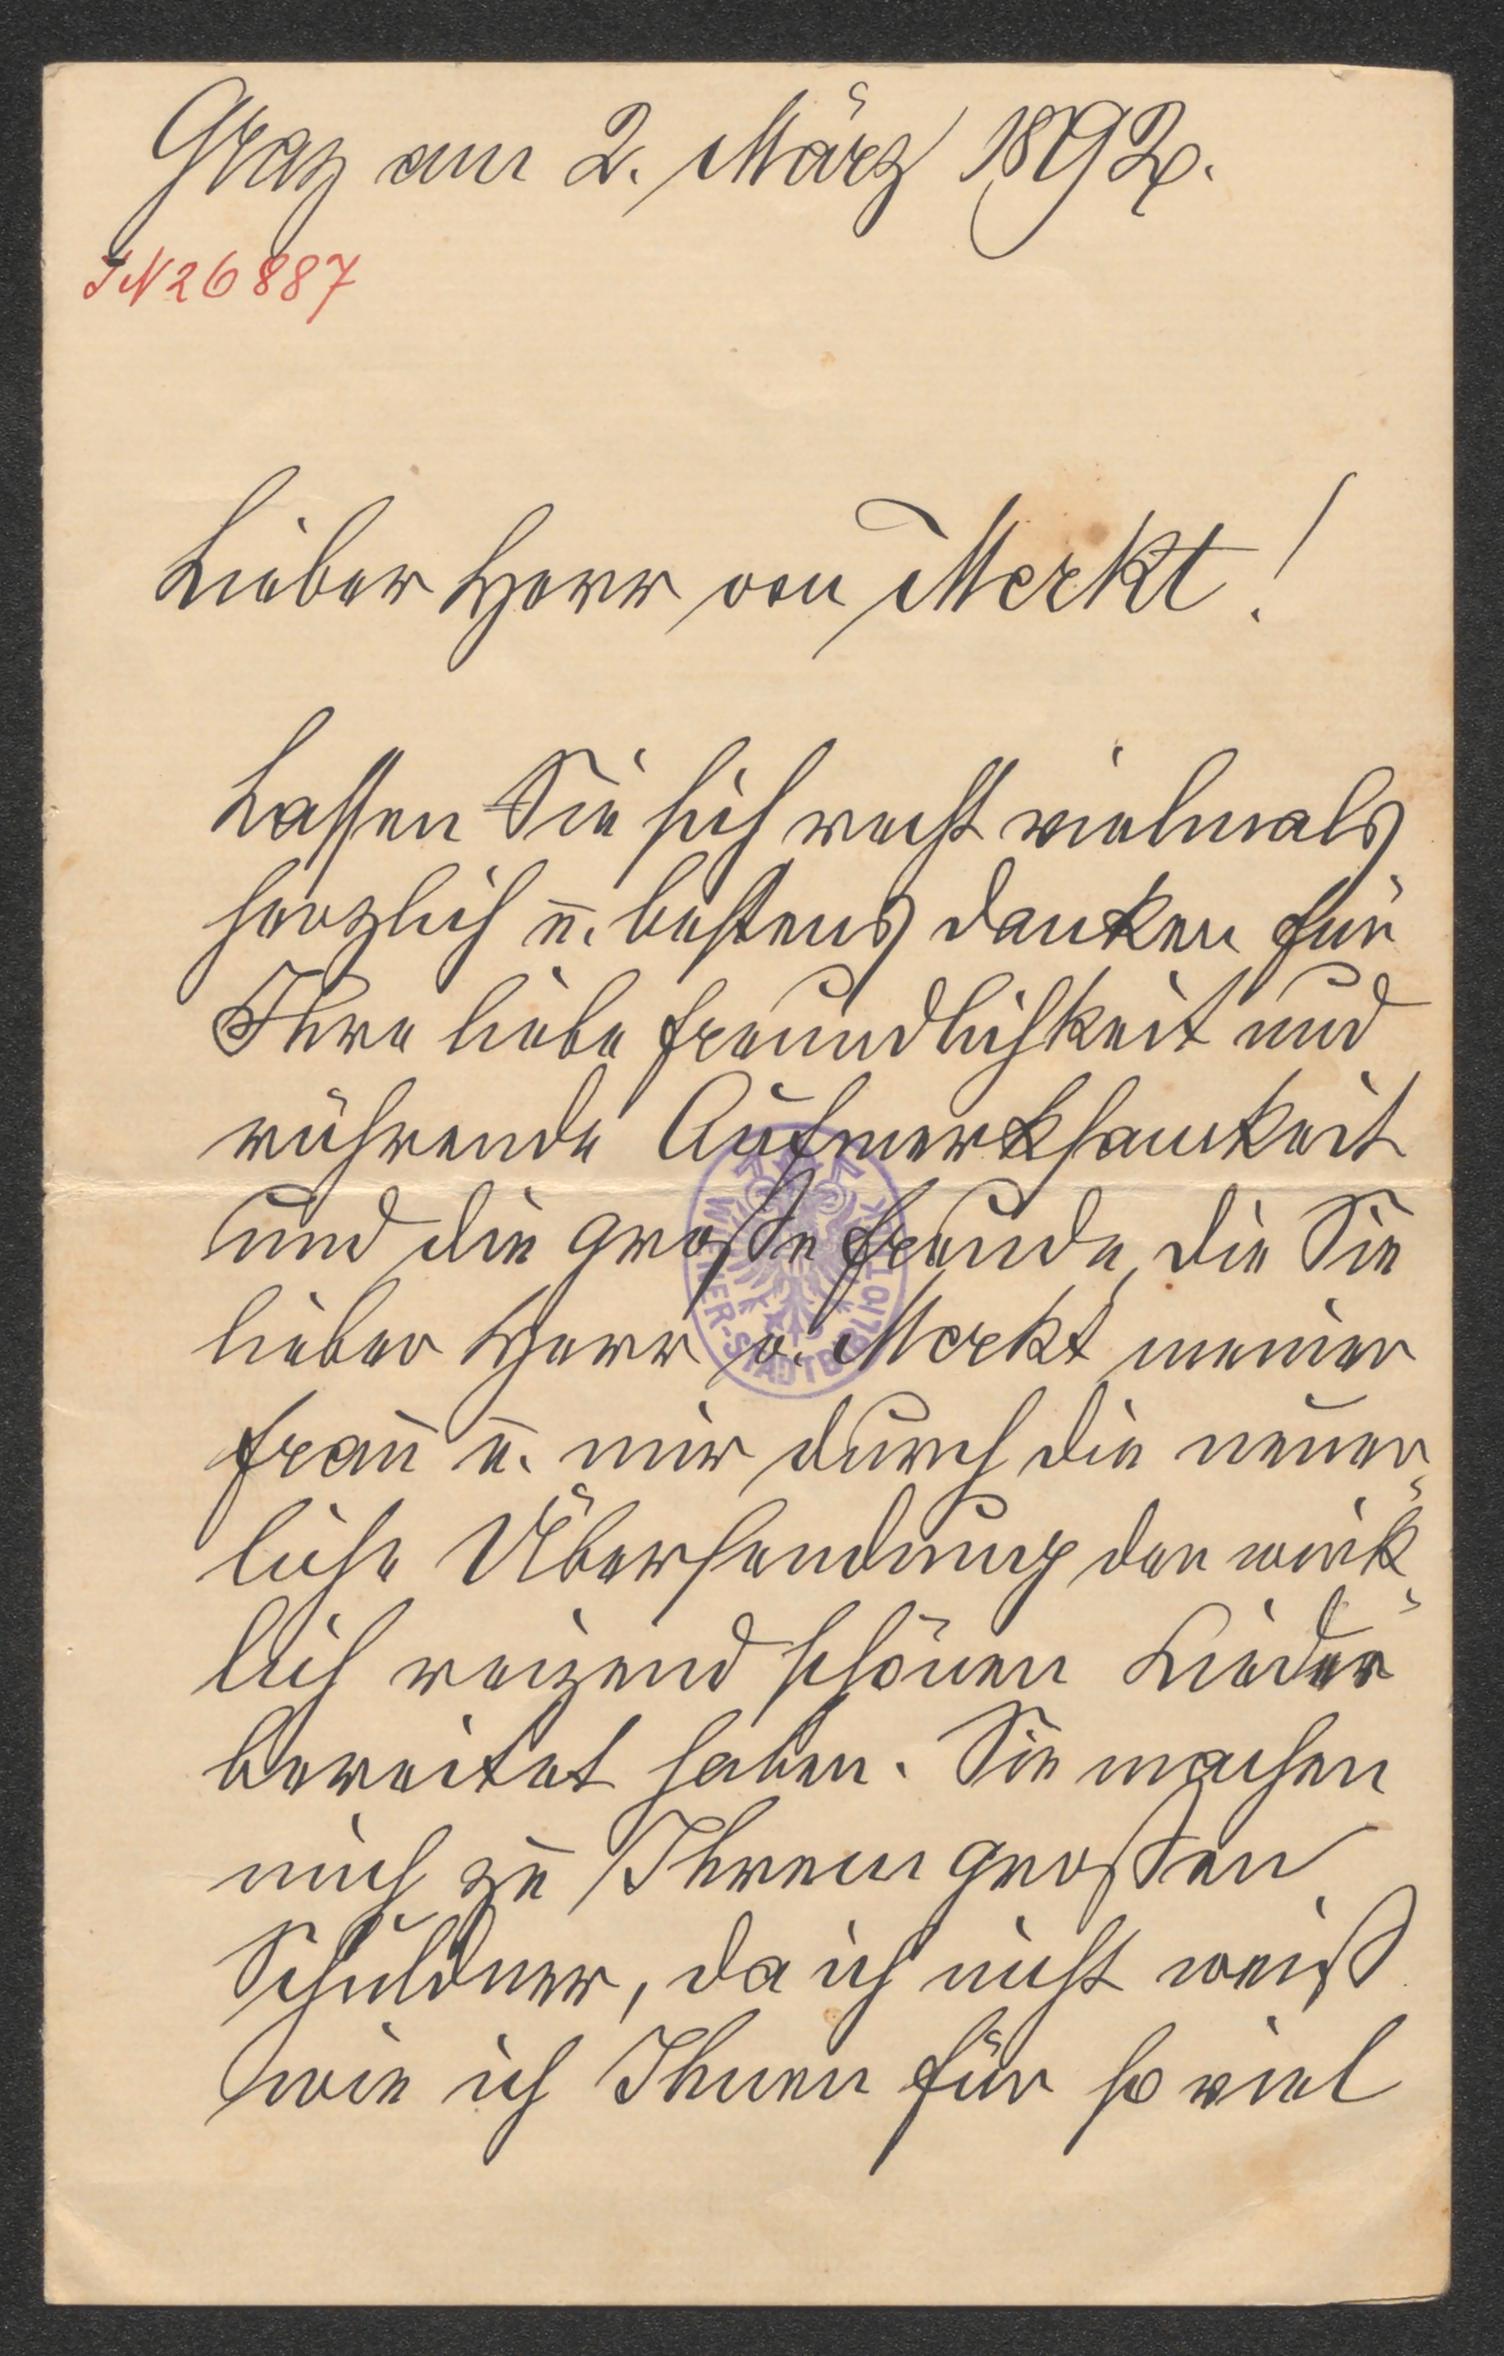 Graz am 2. März 1892.
IN 26887
Lieber Herr von Merkt!
Lassen Sie sich recht vielmals
herzlich u. bestens danken für
Ihre liebe Freundlichkeit und
rührende Aufmerksamkeit
und die große Freude, die Sie
lieber Herr v. Merkt meiner
Frau u. mir durch die neuer-
liche Übersendung der wirk-
lich reizend schönen Lieder
bereitet haben. Sie machen
mich zu Ihrem großen
Schuldner, da ich nicht weiß
wie ich Ihnen für so viel
WIENER-STADTBIBLIOTHEK